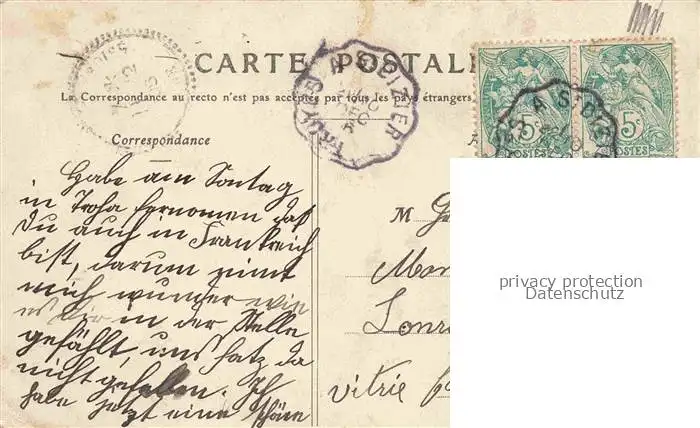 CARTE POSTALE
La Correspondance au recto n'est pas acceptée par tous les pays étrangers.
TROYES A ST DIZIER
5c 5c
POSTES POSTES
Correspondance
Habe am Sontag
in Troja fernomen daß
Du auch in Frankreich
bist, darum nimt
mich wunder wie
es Dir in der Stelle
gefählt, uns hatz da
nicht gefallen. Ich
habe jetzt eine schöne
M
vitrie
privacy protection
Datenschutz